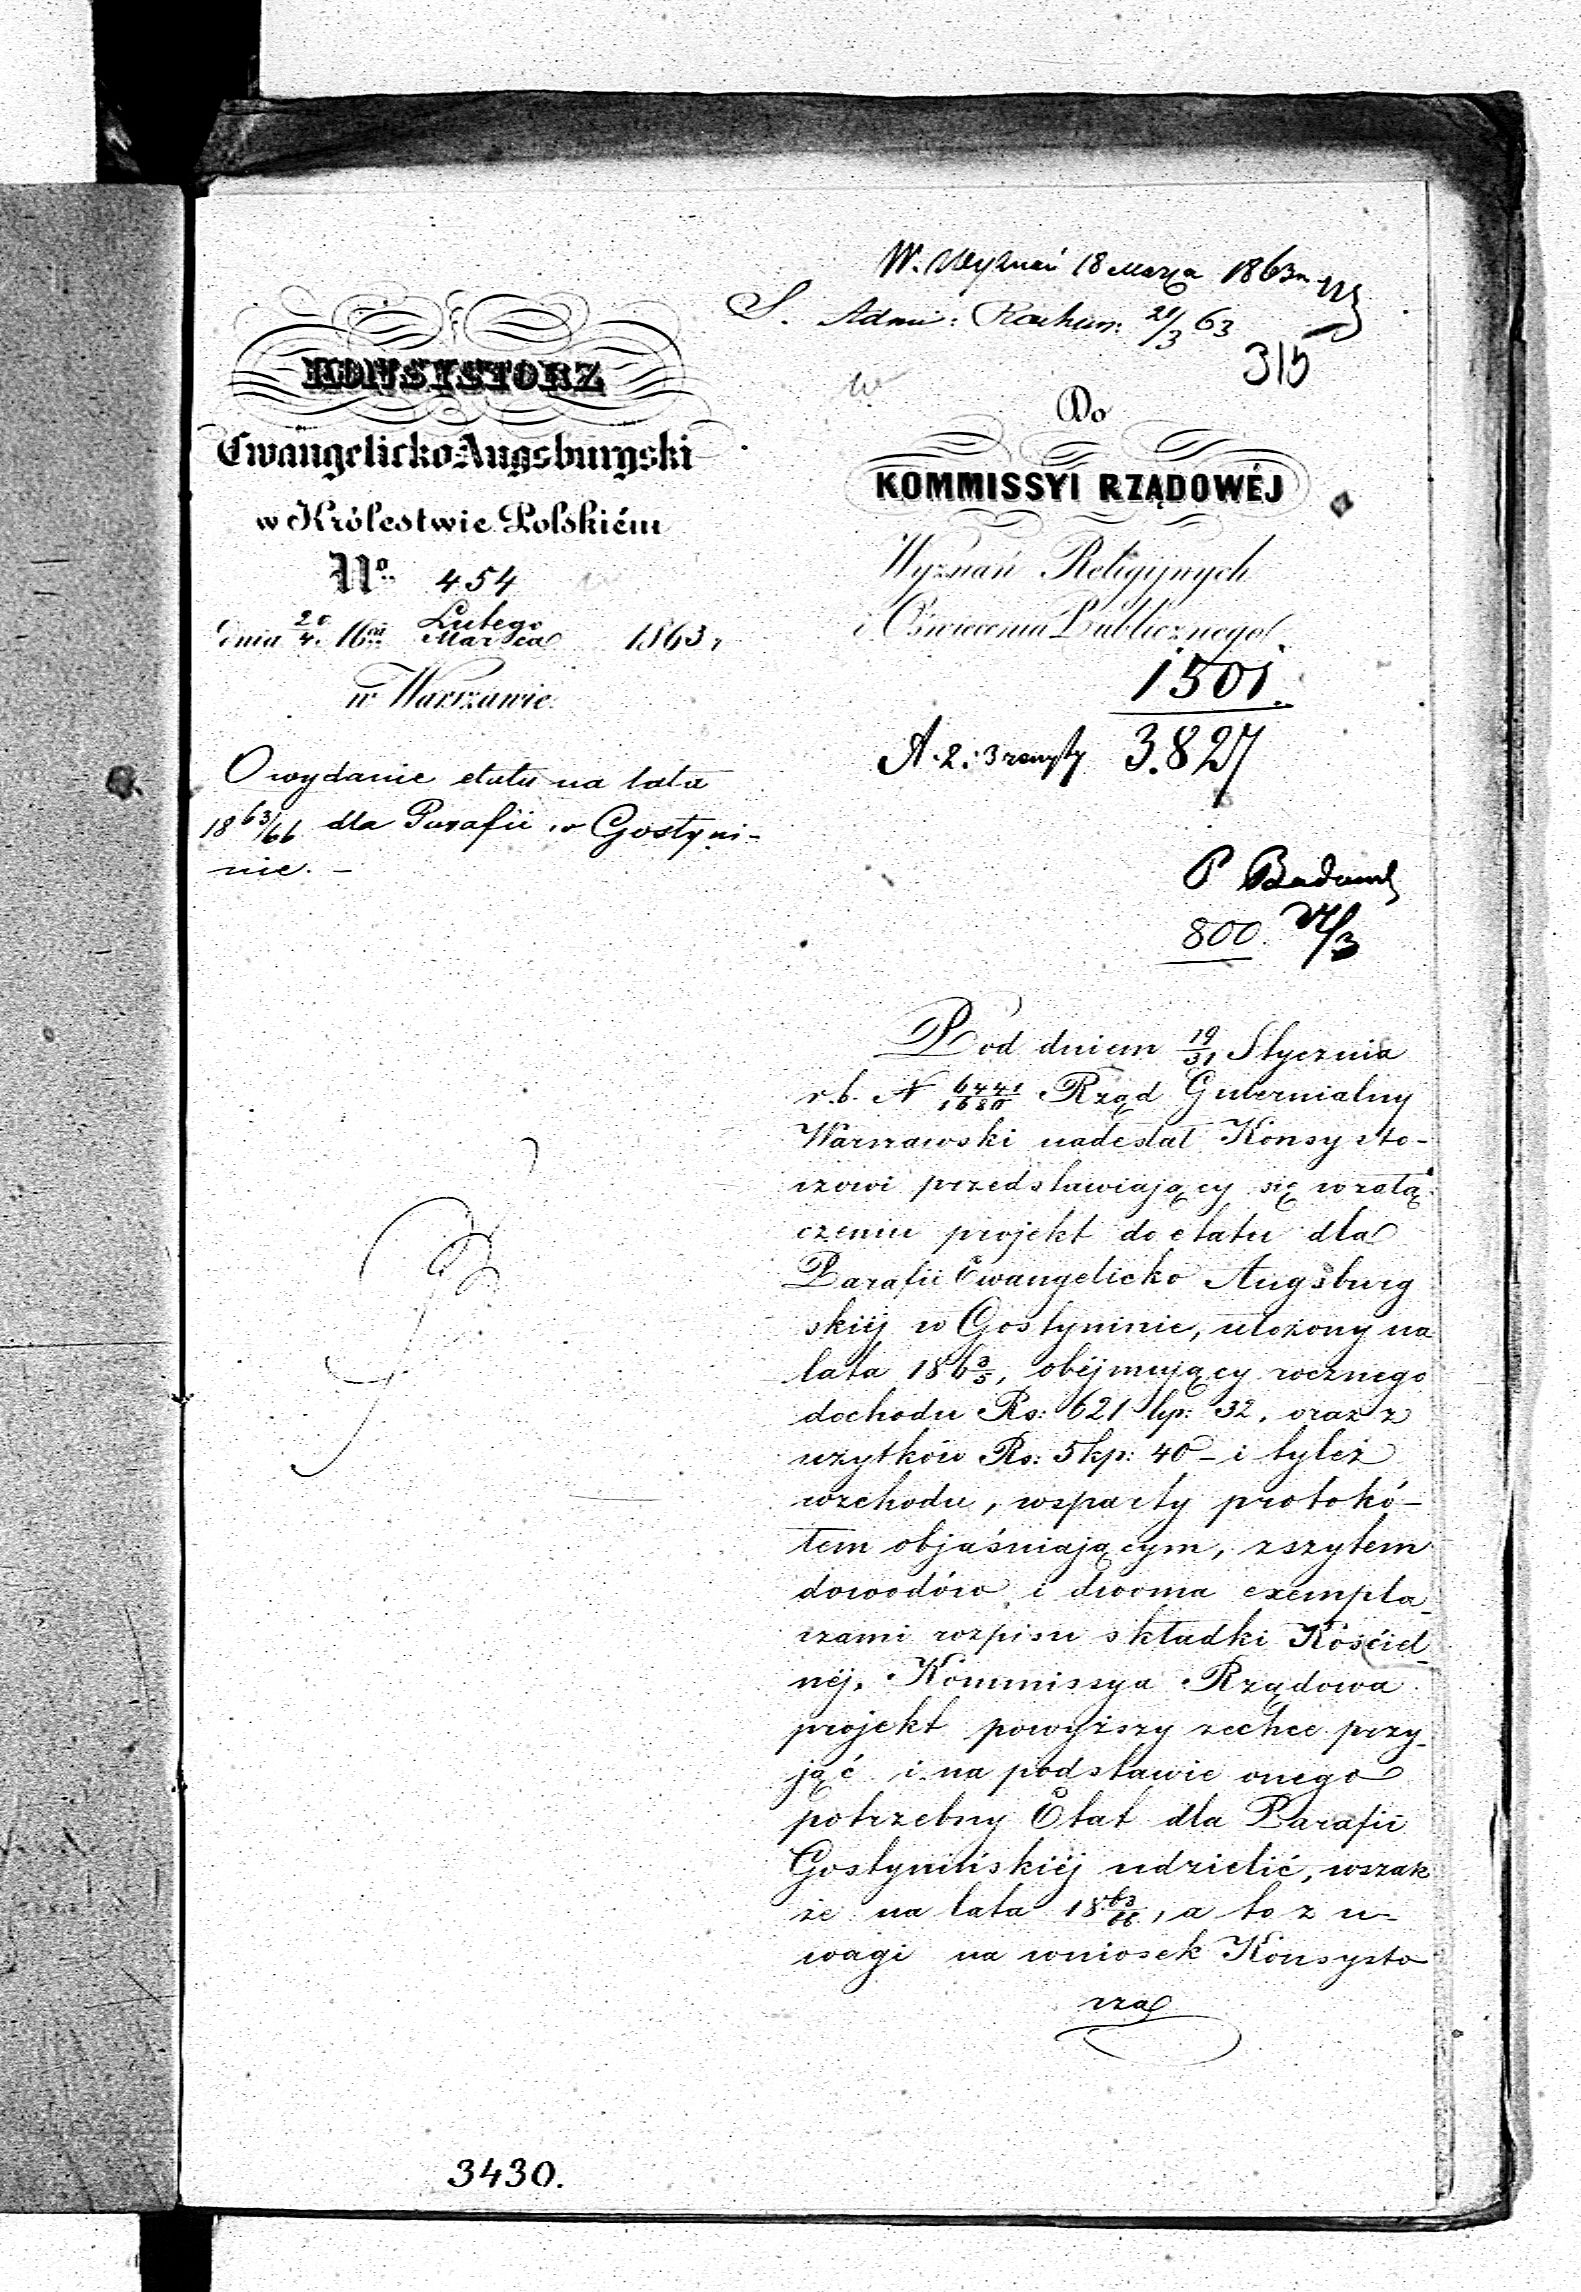 W. Wyznań 18 Marca 1863 r.
S. Admi: Rachun: 21/3 63
315
KONSYSTORZ
Ewangelicko-Augsburgski
w Królestwie Polskiém
No 454
dnia 20/4. 16m Lutego/Marca 1863 r
w Warszawie.
O wydanie etatu na lata
18 63/66 dla Parafii w Gostyni-
nie. –
Do
KOMMISSYI RZĄDOWÉJ
Wyznań Religijnych
i Oświecenia Publicznego.
1501.
A. 2. i 3 zeszyty 3.827
P
800.
Pod dniem 19/31 Stycznia
r. b. N 6441/1680 Rząd Gubernialny
Warszawski nadesłał Konsysto-
rzowi przedstawiający się w załą-
czeniu projekt do etatu dla
Parafii Ewangelicko Augsburg
skiéj w Gostyninie, ułożony na
lata 186 3/5, obéjmujący rocznego
dochodu Rs: 621 kp: 32, oraz z
użytków Rs: 5 kp: 40 – i tyleż
rozchodu, wsparty protokó-
łem objaśniającym, zszytem
dowodów i dwoma exempla-
rzami rozpisu składki Kościel-
néj. Kommissya Rządowa
projekt powyższy zechce przy-
jąć i na podstawie onego
potrzebny Etat dla Parafii
Gostynińskiéj udzielić, wszak
że na lata 18 63/66, a to z u-
wagi na wniosek Konsysto
rza
3430.